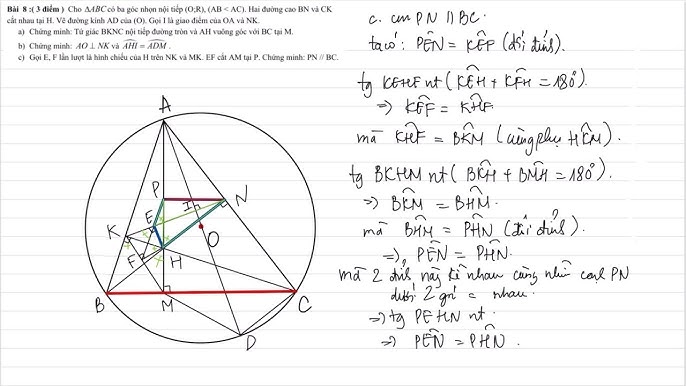 Bài 8 :( 3 điểm ) Cho ΔABC có ba góc nhọn nội tiếp (O;R), (AB < AC). Hai đường cao BN và CK
cắt nhau tại H. Vẽ đường kính AD của (O). Gọi I là giao điểm của OA và NK.
a) Chứng minh: Tứ giác BKNC nội tiếp đường tròn và AH vuông góc với BC tại M.
b) Chứng minh: AO ⊥ NK và \widehat{AHI} = \widehat{ADM} .
c) Gọi E, F lần lượt là hình chiếu của H trên NK và MK. EF cắt AM tại P. Chứng minh: PN // BC.
c. cm PN // BC.
ta có: PÊN = KÊF (đối đỉnh).
tg KEHF nt ( KÊH + KF̂H = 180°)
=> KÊF = KĤF.
mà KĤF = BK̂M (cùng phụ HK̂M).
tg BKHM nt ( BK̂H + BM̂H = 180°).
=> BK̂M = BĤM.
mà BĤM = PĤN (đối đỉnh).
=> PÊN = PĤN.
mà 2 đỉnh này kề nhau cùng nhìn cạnh PN
dưới 2 góc = nhau.
=> tg PEHN nt.
=> PÊN = PĤN .
A
P
N
I
E
K
O
F
H
B
M
C
D